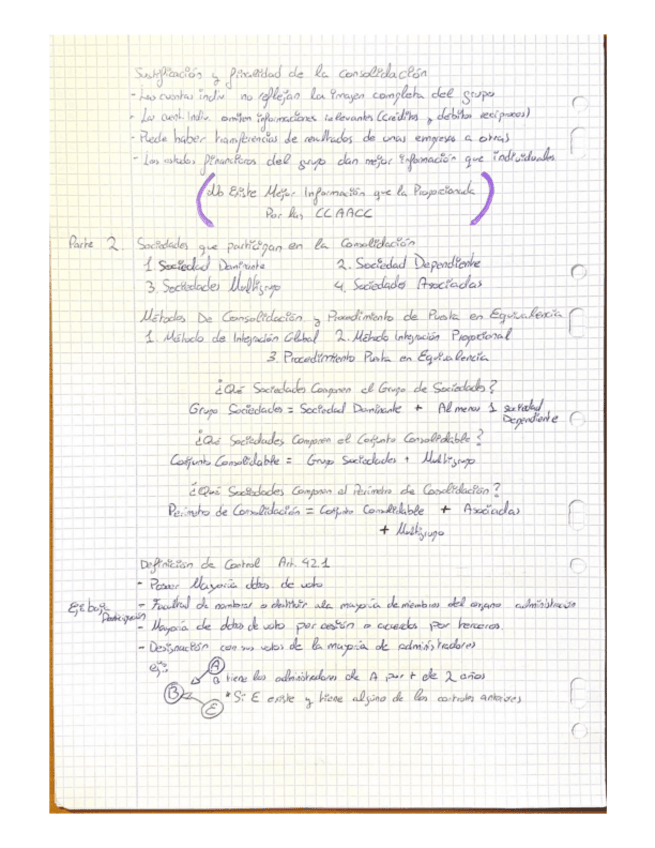 Justificación y finalidad de la consolidación
- Las cuentas indiv. no reflejan la imagen completa del grupo
- Las cuent. indiv. omiten informaciones relevantes (créditos y débitos recíprocos)
- Puede haber transferencias de resultados de unas empresas a otras
- Los estados financieros del grupo dan mejor información que individuales
No Existe Mejor Información que la Proporcionada
Por las CCAACC
Parte 2. Sociedades que participan en la Consolidación
1. Sociedad Dominante 2. Sociedad Dependiente
3. Sociedades Multigrupo 4. Sociedades Asociadas
Métodos De Consolidación y Procedimiento de Puesta en Equivalencia
1. Método de Integración Global 2. Método Integración Proporcional
3. Procedimiento Puesta en Equivalencia
¿Qué Sociedades Componen el Grupo de Sociedades?
Grupo Sociedades = Sociedad Dominante + Al menos 1 sociedad
Dependiente
¿Qué Sociedades Componen el Conjunto Consolidable?
Conjunto Consolidable = Grupo Sociedades + Multigrupo
¿Qué Sociedades Componen el Perímetro de Consolidación?
Perímetro de Consolidación = Conjunto Consolidable + Asociadas
+ Multigrupo
Definición de Control Art. 42.1
- Poseer Mayoría dchos de voto
- Facultad de nombrar o destituir a la mayoría de miembros del organo administración
- Mayoría de dchos de voto por cesión o acuerdos por terceros
- Designación con sus votos de la mayoría de administradores
ej: A
B tiene los administradores de A por + de 2 años
B
E * Si E existe y tiene alguno de los controles anteriores